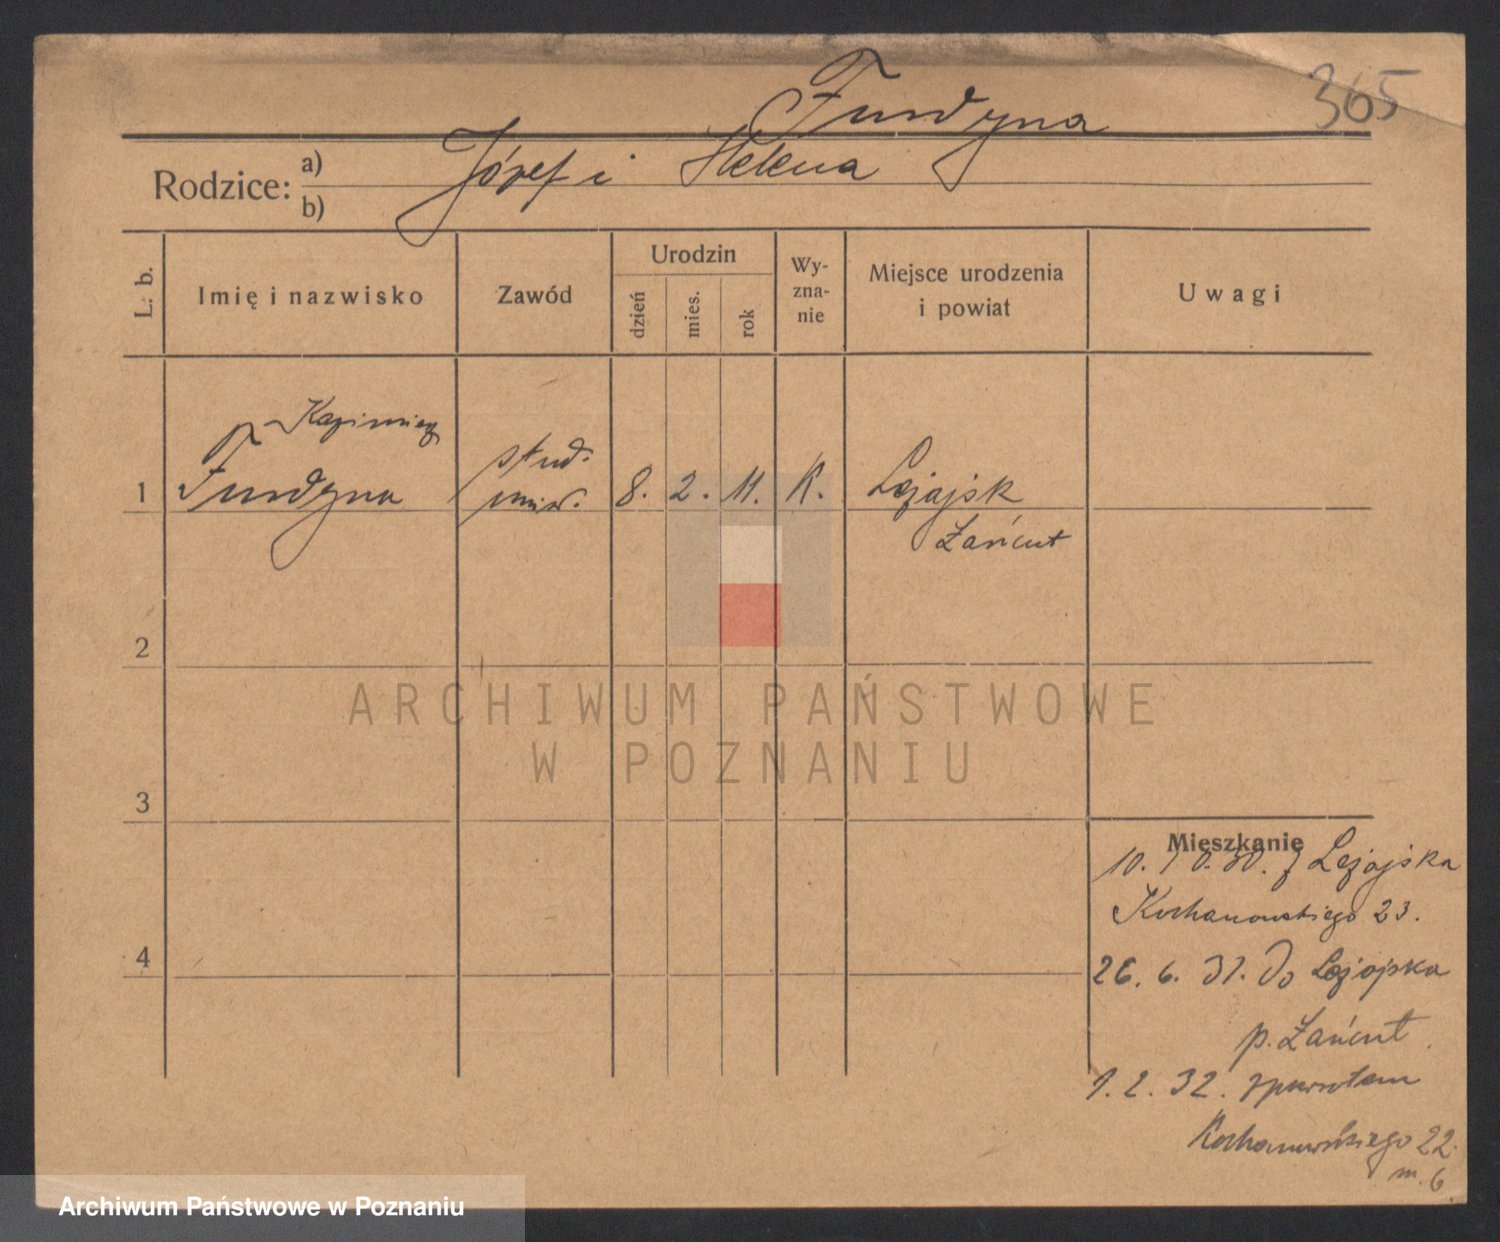 365
Furdyna
Rodzice: a) Józef i Helena
b)
L. b.
Imię i nazwisko
Zawód
Urodzin
dzień
mies.
rok
Wy-
zna-
nie
Miejsce urodzenia
i powiat
Uwagi
Kazimierz
1 Furdyna
stud.
uniw.
8. 2. 11. K.
Leżajsk
Łańcut
2
3
4
Mieszkanie
10. 10. 30. z Leżajska
Kochanowskiego 23.
26. 6. 31. do Leżajska
p. Łańcut.
1. 2. 32. zpowrotem
Kochanowskiego 22.
m. 6
ARCHIWUM PAŃSTWOWE
W POZNANIU
Archiwum Państwowe w Poznaniu